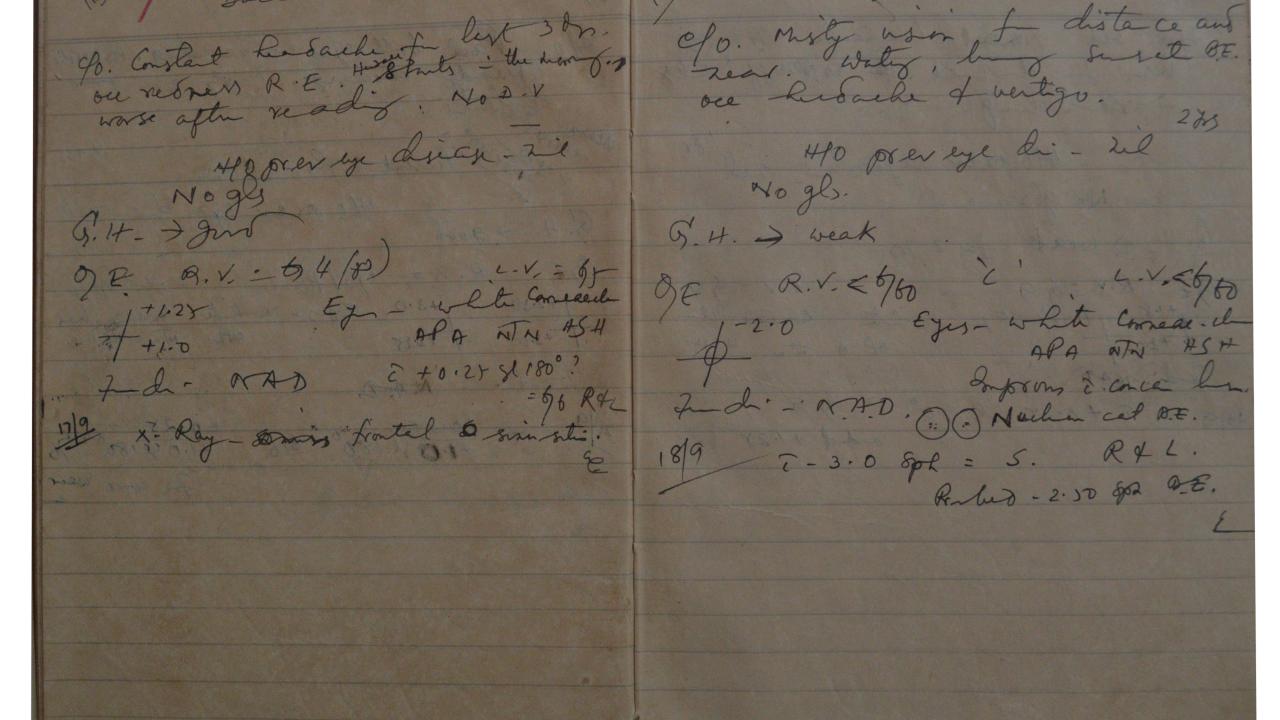 c/o. Constant headache for last 3 ds.
occ redness R.E. Starts the morning,
worse after reading. No D.V
H/O prev eye disease - nil
No gls
G.H. → good
O/E R.V. = L.V. = 6/5
+1.25 Eyes - white Corneae
+1.0 APA NTN ASH
Fundi - NAD c̄ +0.25 180° ?
= 6/6 R & L
17/9 X-Ray - frontal sinusitis.
c/o. Misty vision for distance and
near. watery, burning BE.
occ headache & vertigo.
2 yrs
H/O prev eye di - nil
No gls.
G.H. → weak
O/E R.V. < 6/60 L.V. < 6/60
-2.0 Eyes - white Corneae
APA NTN ASH
Improves c̄ concave
Fundi - NAD. Nuclear cat BE.
18/9 c̄ - 3.0 Sph = R & L.
- 2.50 Sph BE.